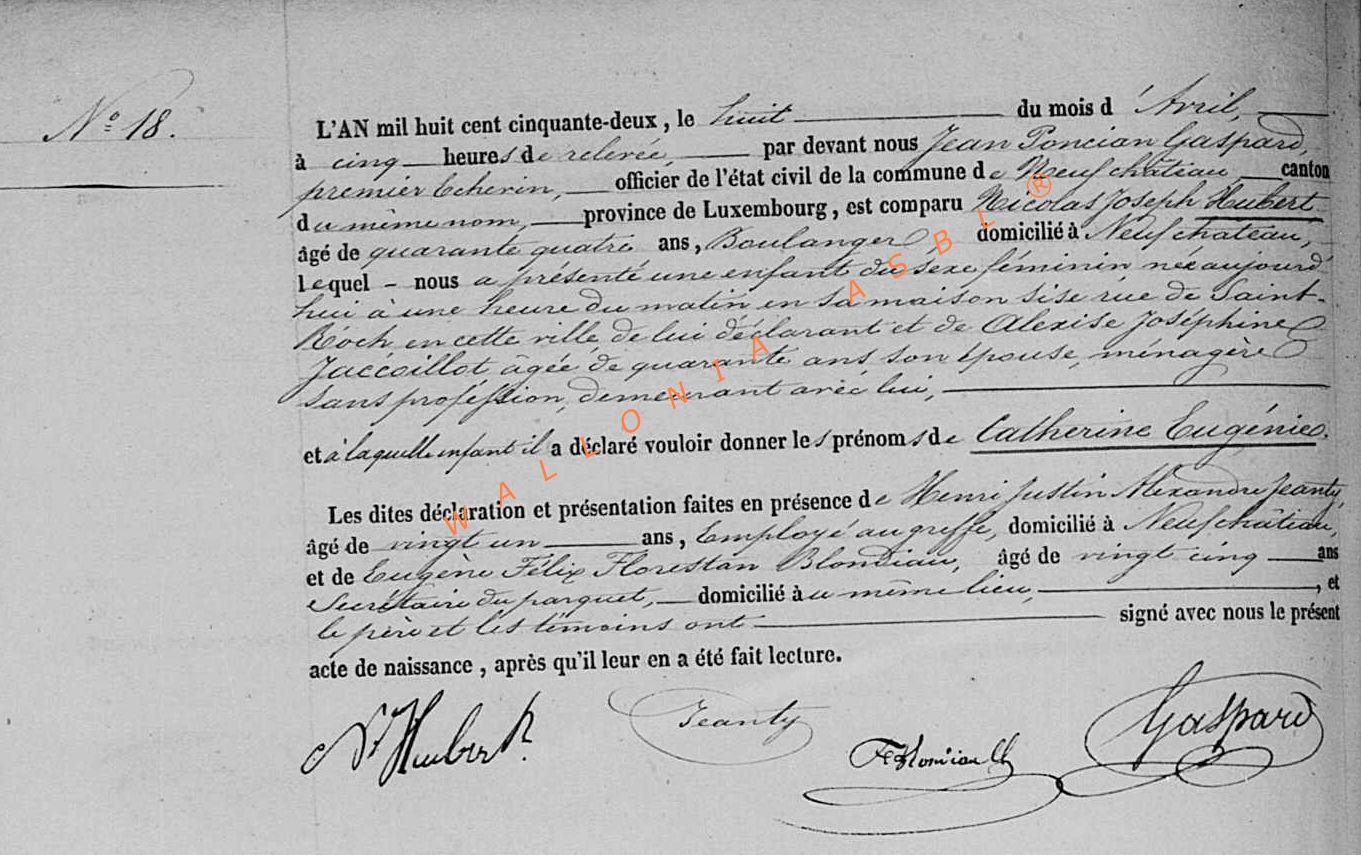 N° 18.
L'AN mil huit cent cinquante-deux, le huit du mois d'Avril,
à cinq heures de relevée, par devant nous Jean Poncian Gaspard,
premier Echevin, officier de l'état civil de la commune de Neufchâteau, canton
du même nom, province de Luxembourg, est comparu Nicolas Joseph Hubert
âgé de quarante quatre ans, Boulanger, domicilié à Neufchateau,
lequel - nous a présenté une enfant du sexe féminin née aujourd
hui à une heure du matin en sa maison sise rue de Saint-
Roch en cette ville, de lui déclarant et de Alexise Joséphine
Jaccoillot âgée de quarante ans son épouse, ménagère
sans profession, demeurant avec lui,
et à laquelle enfant il a déclaré vouloir donner les prénoms de Catherine Eugénie.
Les dites déclaration et présentation faites en présence de Henri Justin Alexandre Jeanty,
âgé de vingt un ans, Employé au greffe, domicilié à Neufchâteau,
et de Eugène Félix Florestan Blondiau, âgé de vingt cinq ans
Secrétaire du parquet, domicilié au même lieu, et
le père et les témoins ont signé avec nous le présent
acte de naissance, après qu'il leur en a été fait lecture.
Hubert
Jeanty
Gaspard
WALLONIA ASBL ®